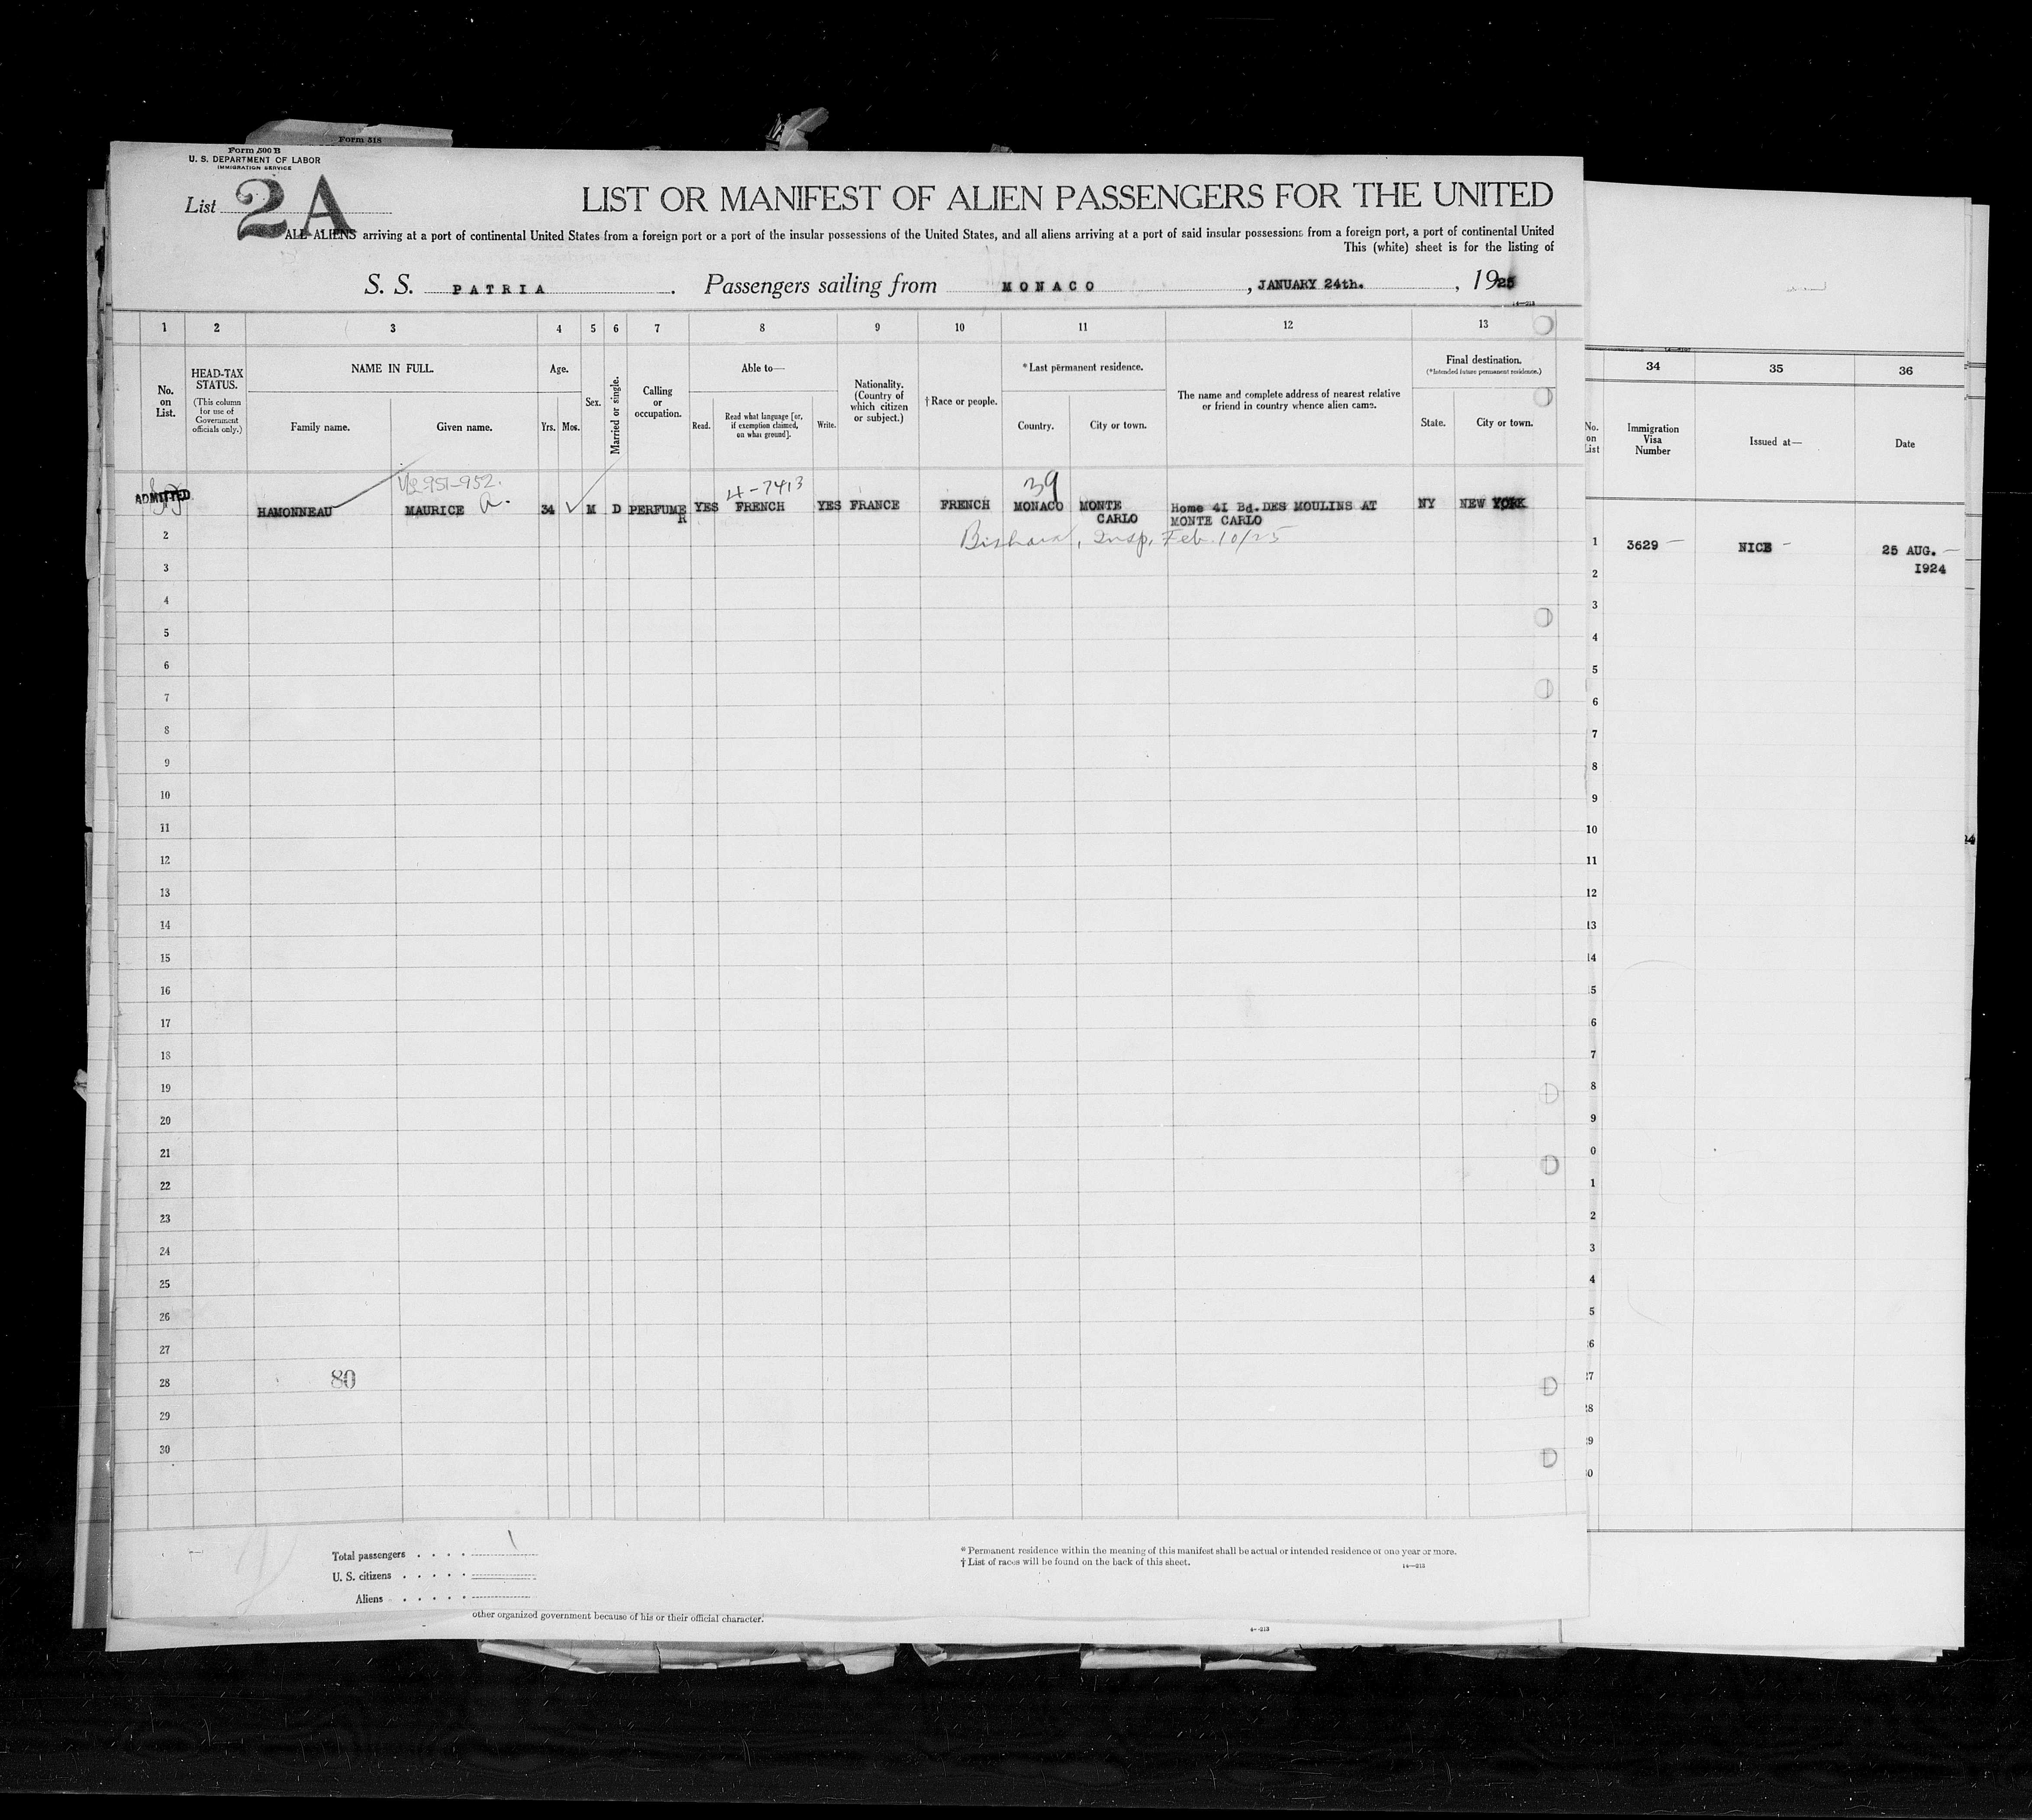 Form 518
Form 500 B
U. S. DEPARTMENT OF LABOR
IMMIGRATION SERVICE
List 2A
LIST OR MANIFEST OF ALIEN PASSENGERS FOR THE UNITED
ALL ALIENS arriving at a port of continental United States from a foreign port or a port of the insular possessions of the United States, and all aliens arriving at a port of said insular possessions from a foreign port, a port of continental United
This (white) sheet is for the listing of
S. S. PATRIA. Passengers sailing from MONACO, JANUARY 24th., 1925
14—213
1 2 3 4 5 6 7 8 9 10 11 12 13
No. on List.
HEAD-TAX STATUS.
(This column for use of Government officials only.)
NAME IN FULL.
Family name.
Given name.
Age.
Yrs.
Mos.
Sex.
Married or single.
Calling or occupation.
Able to—
Read.
Read what language [or, if exemption claimed, on what ground].
Write.
Nationality. (Country of which citizen or subject.)
†Race or people.
*Last permanent residence.
Country.
City or town.
The name and complete address of nearest relative or friend in country whence alien came.
Final destination.
(*Intended future permanent residence.)
State.
City or town.
34 35 36
No. on List
Immigration Visa Number
Issued at—
Date
951-952.
4-7413
39
ADMITTED
HAMONNEAU MAURICE a. 34 M D PERFUMER YES FRENCH YES FRANCE FRENCH MONACO MONTE CARLO Home 4I Bd.DES MOULINS AT MONTE CARLO NY NEW YORK
Insp. Feb. 10/25
1 3629 — NICE — 25 AUG. — I924
2
3
4
5
6
7
8
9
10
11
12
13
14
15
16
17
18
19
20
21
22
23
24
25
26
27
28 80
29
30
2
3
4
5
6
7
8
9
10
11
12
13
14
5
6
7
8
9
0
1
2
3
4
5
6
7
8
9
0
24
Total passengers . . . . 1
U. S. citizens . . . . .
Aliens . . . . .
*Permanent residence within the meaning of this manifest shall be actual or intended residence of one year or more.
†List of races will be found on the back of this sheet.
14—213
other organized government because of his or their official character.
4—213